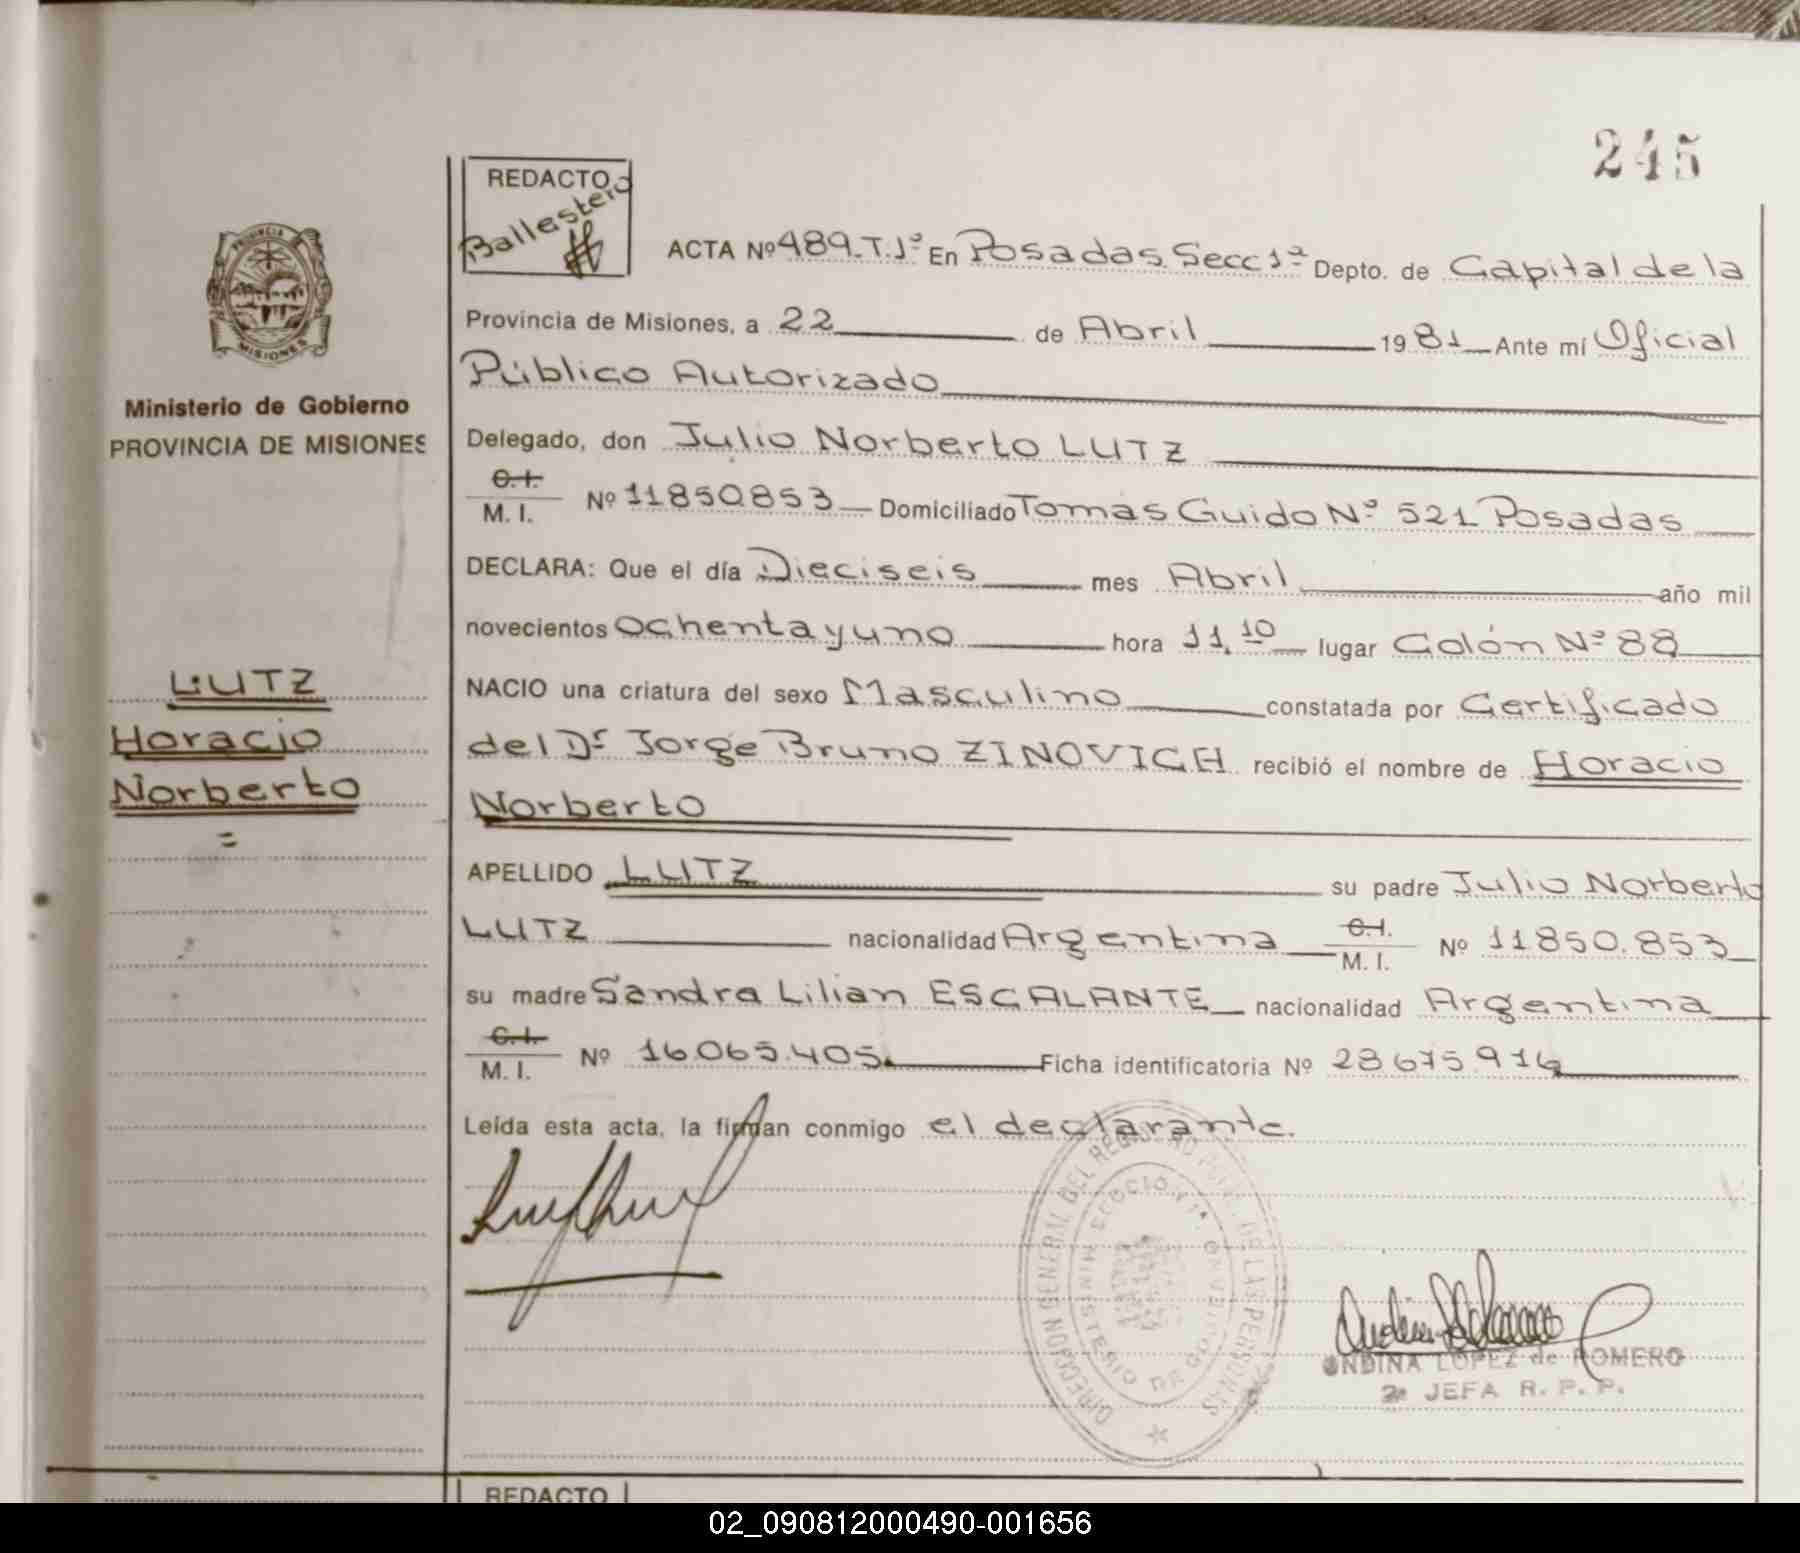 245
REDACTO
Ballestero
ACTA Nº 489. T. 1º En Posadas Secc 1ª Depto. de Capital de la
PROVINCIA
MISIONES
Provincia de Misiones, a 22 de Abril 1981 Ante mí Oficial
Público Autorizado
Ministerio de Gobierno
PROVINCIA DE MISIONES
Delegado, don Julio Norberto LUTZ
C.I.
M. I. Nº 11850.853 Domiciliado Tomás Guido Nº 521 Posadas
DECLARA: Que el día Dieciseis mes Abril año mil
novecientos ochenta y uno hora 11.10 lugar Colón Nº 88
LUTZ
Horacio
Norberto
NACIO una criatura del sexo Masculino constatada por Certificado
del Dr Jorge Bruno ZINOVICH recibió el nombre de Horacio
Norberto
APELLIDO LUTZ su padre Julio Norberto
LUTZ nacionalidad Argentina C.I. M. I. Nº 11850.853
su madre Sandra Lilian ESCALANTE nacionalidad Argentina
C.I.
M. I. Nº 16.065.405. Ficha identificatoria Nº 28.675.916
Leída esta acta, la firman conmigo el declarante.
DIRECCION GENERAL DEL REGISTRO PCIAL. DE LAS PERSONAS
MINISTERIO DE GOBIERNO
SECCION 1ª
ONDINA LOPEZ de ROMERO
2ª JEFA R. P. P.
REDACTO
02_090812000490-001656